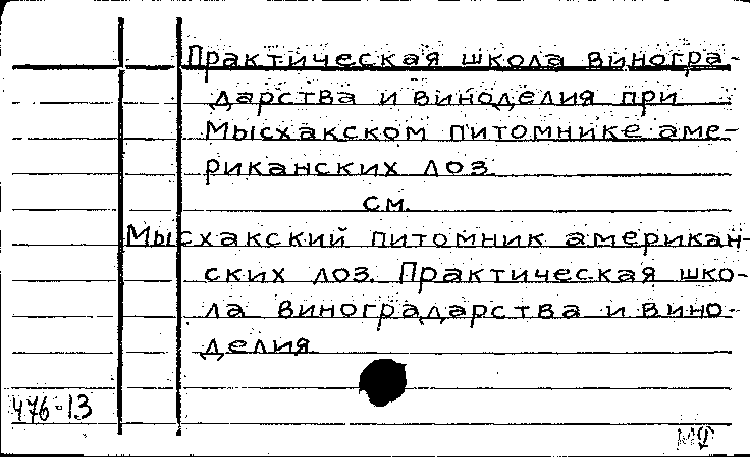 Практическая школа виногра-
дарства и виноделия при
Мысхакском питомнике аме-
риканских лоз
см.
Мысхакский питомник американ-
ских лоз. Практическая шко-
ла виноградарства и вино-
делия
476-13
МФ